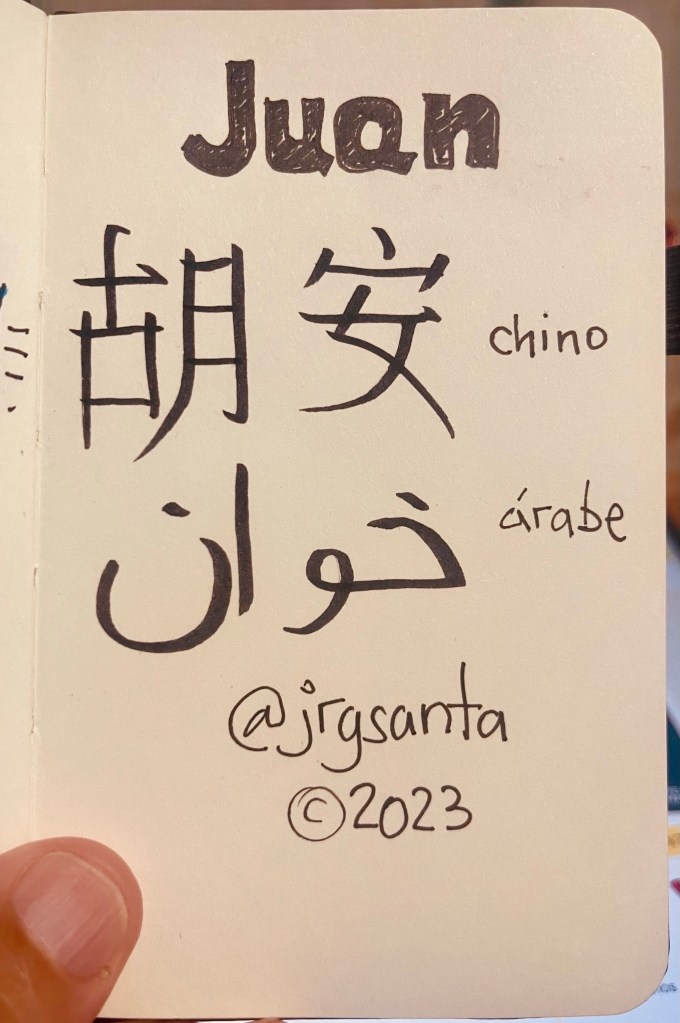 Juan
胡安 chino
خوان árabe
@jrgsanta
©2023